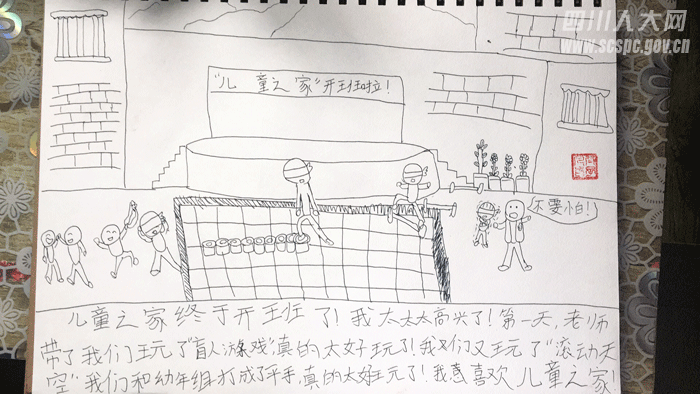 四川人大网
www.scspc.gov.cn
"儿童之家"开班啦!
不要怕!)
儿童之家终于开班了!我太太太高兴了!第一天,老师
带了我们玩了"盲人游戏"真的太好玩了!我们又玩了"滚动天
空"我们和幼年组打成了平手,真的太好玩了!我喜欢儿童之家!